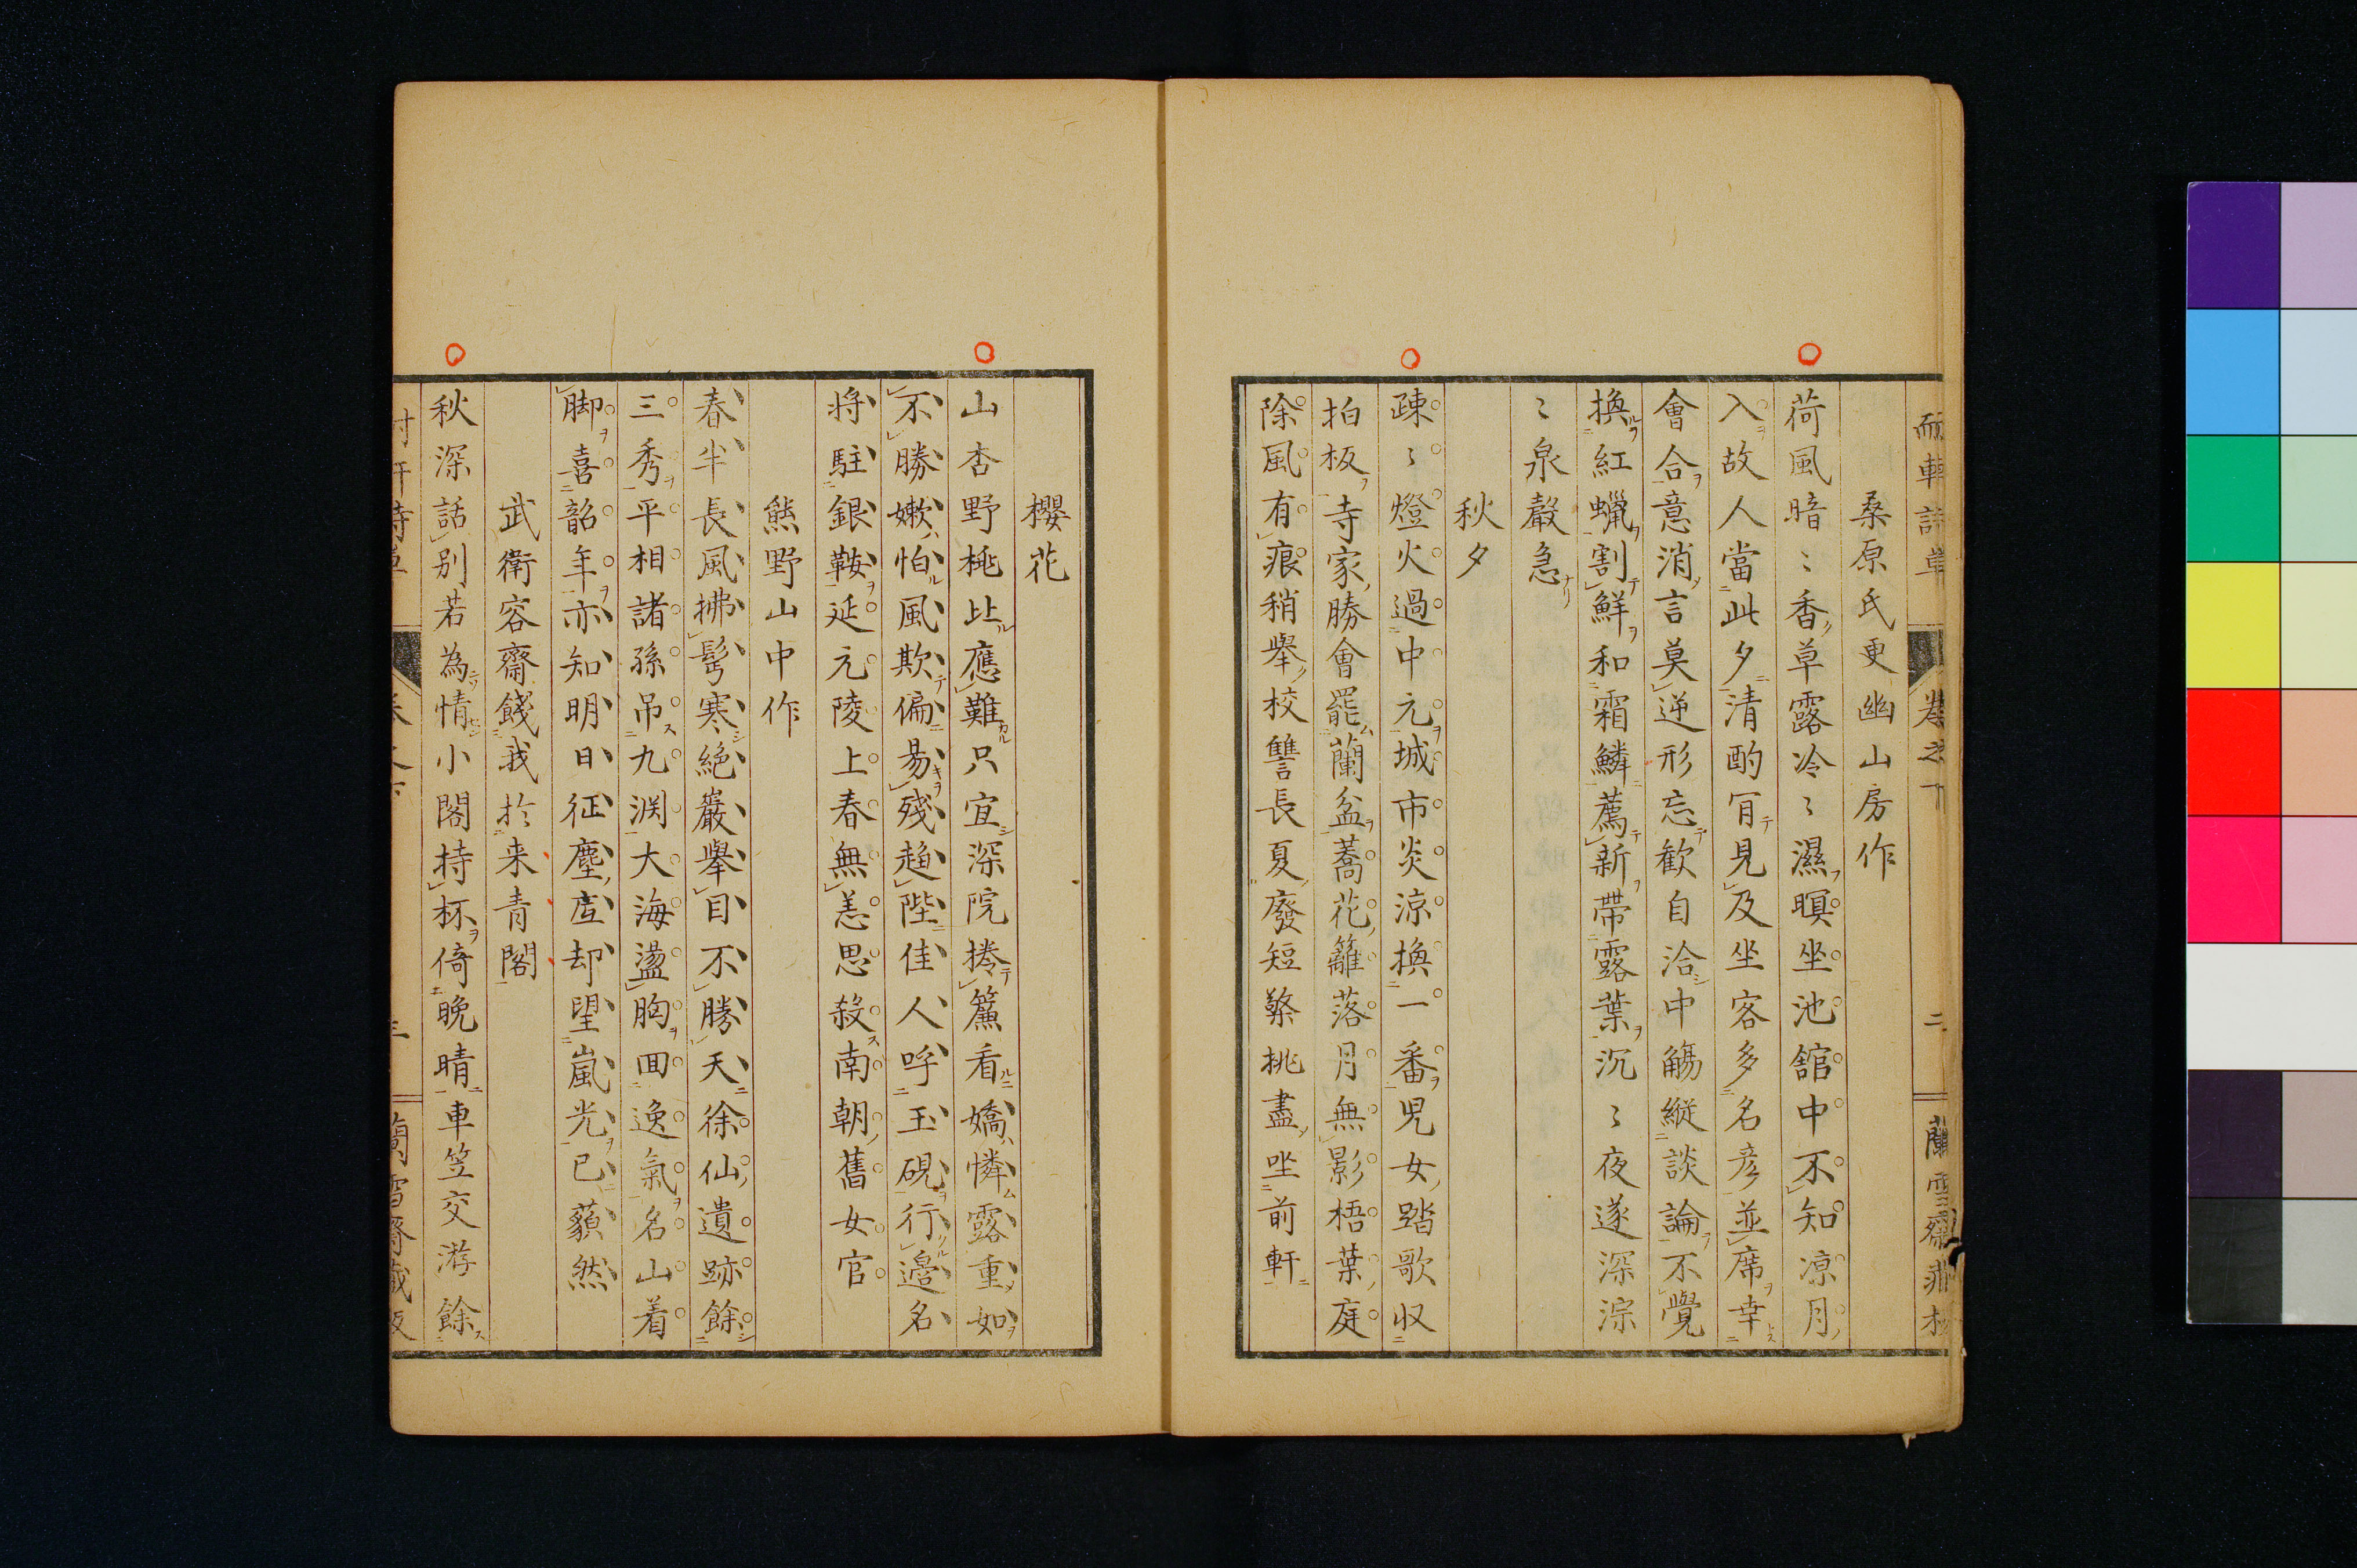 桑原氏更幽山房作
荷風暗〻香草露冷〻濕瞑坐池舘中不知凉月
入故人當此夕清酌肎見及坐客多名彦並席幸
會合意消言莫逆形忘歓自洽中觴縦談論不覺
換紅蠟割鮮和霜鱗薦新帶露葉沉〻夜遂深淙
〻泉聲急
秋夕
疎〻燈火過中元城市炎涼換一番児女踏歌収
拍板寺家勝會罷蘭盆蕎花籬落月無影梧葉庭
除風有痕稍舉校讐長夏廢短檠挑盡坐前軒
櫻花
山杏野桃比應難只宜深院捲簾看嬌憐露重如
不勝嫩怕風欺偏易殘趂陛佳人呼玉硯行邉名
将駐銀鞍延元陵上春無恙思殺南朝舊女官
熊野山中作
春半長風拂髩寒絶巖舉目不勝天徐仙遺跡餘
三秀平相諸孫吊九渕大海盪胸囬逸氣名山着
脚喜韶年亦知明日征塵店却望嵐光已藐然
武衛容齋餞我於来青閣
秋深話别若為情小閣持杯倚晩晴車笠交游餘